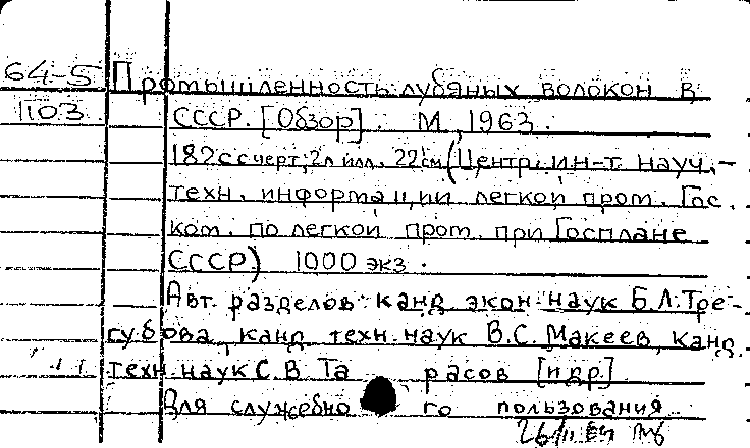 64-5 Промышленность лубяных волокон в
П03 СССР. [Обзор]. М., 1963.
182 с с черт; 2 л илл. 22 см (Центр. ин-т науч.-
техн. информации легкой пром. Гос.
ком. по легкой пром. при Госплане
СССР) 1000 экз.
Авт. разделов: канд экон. наук Б.Л. Тре-
губова, канд техн. наук В.С. Макеев, канд.
техн. наук С.В. Тарасов [и др.]
Для служебного пользования